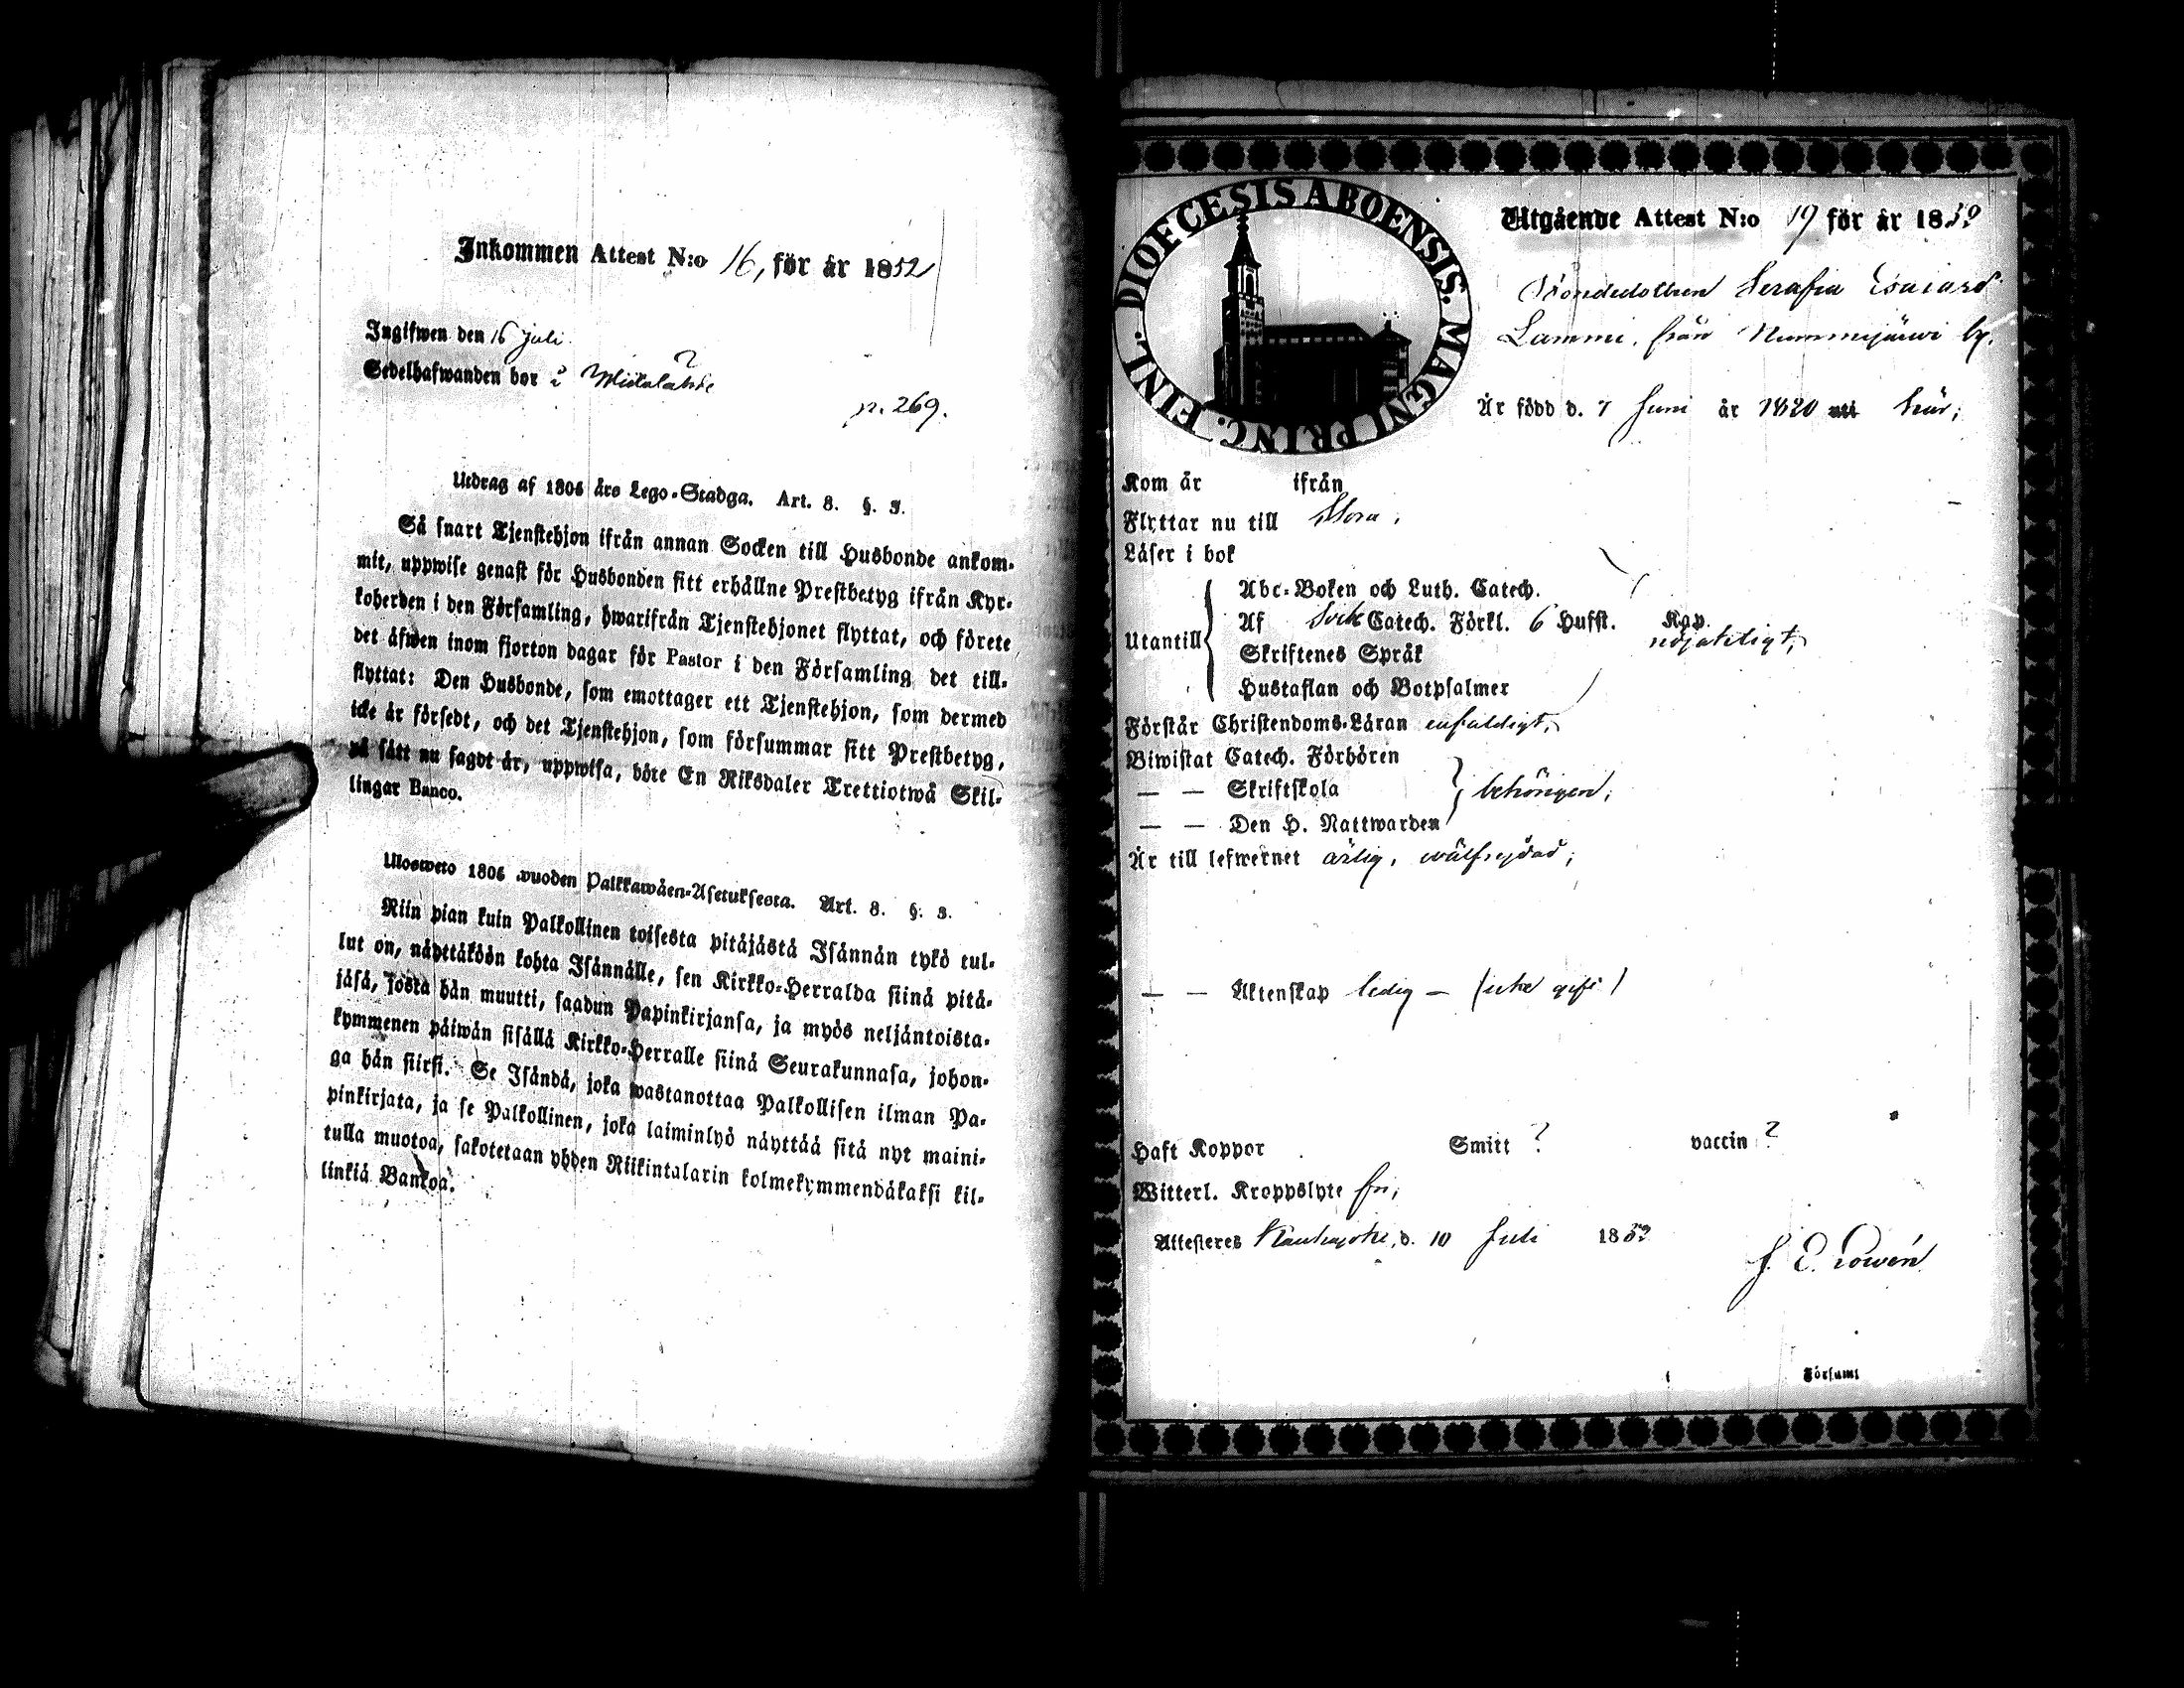 Inkommen Attest N:o 16, för år 1852
Ingifwen den 16 juli
Sedelhafwanden bor i
p. 269.
Utdrag af 1805 års Lego-Stadga. Art. 8. §. 3.
Så snart Tjenstehjon ifrån annan Socken till Husbonde ankom-
mit, uppwise genast för Husbonden sitt erhållne Prestbetyg ifrån Kyr-
koherden i den Församling, hwarifrån Tjenstehjonet flyttat, och förete
det äfwen inom fjorton dagar för Pastor i den Församling det till-
flyttat: Den Husbonde, som emottager ett Tjenstehjon, som dermed
icke är försedt, och det Tjenstehjon, som försummar sitt Prestbetyg,
på sätt nu sagdt är, uppwisa, böte En Riksdaler Trettiotwå Skil-
lingar Banco.
Ulosweto 1805 wuoden Palkkawäen-Asetuksesta. Art. 8. §. 3.
Niin pian kuin Palkollinen toisesta pitäjästä Isännän tykö tul-
lut on, näyttäköön kohta Isännälle, sen Kirkko-Herralda siinä pitä-
jäsä, josta hän muutti, saadun Papinkirjansa, ja myös neljäntoista-
kymmenen päiwän sisällä Kirkko-Herralle siinä Seurakunnasa, johon-
ga hän siirsi. Se Isändä, joka wastanottaa Palkollisen ilman Pa-
pinkirjata, ja se Palkollinen, joka laiminlyö näyttää sitä nyt maini-
tulla muotoa, sakotetaan yhden Riikintalarin kolmekymmendäkaksi kil-
linkiä Bankoa.
DIOECESIS ABOENSIS. MAGNI PRINC. FINL.
Utgående Attest N:o 19 för år 1852
Bondedottren Serafia Esaiasd
Lammi, från Nummijärwi by.
Är född d. 7 Juni år 1820 uti här;
Kom år ifrån
Flyttar nu till Storå;
Läser i bok
Abc-Boken och Luth. Catech.
Utantill
Af Catech. Förkl. 6 Hufst. Kap.
nöjaktigt;
Skriftenes Språk
Hustaflan och Botpsalmer
Förstår Christendoms-Läran enfaldigt;
Biwistat Catech. Förhören
— — Skriftskola behörigen;
— — Den H. Nattwarden
Är till lefwernet ärlig, wälfrejdad;
— — Äktenskap ledig — (icke gift)
Haft Koppor Smitt ? vaccin ?
Witterl. Kroppslyte fri;
Attesteres Kauhajoki, d. 10 Juli 1852
J. E. Lowén
Församl